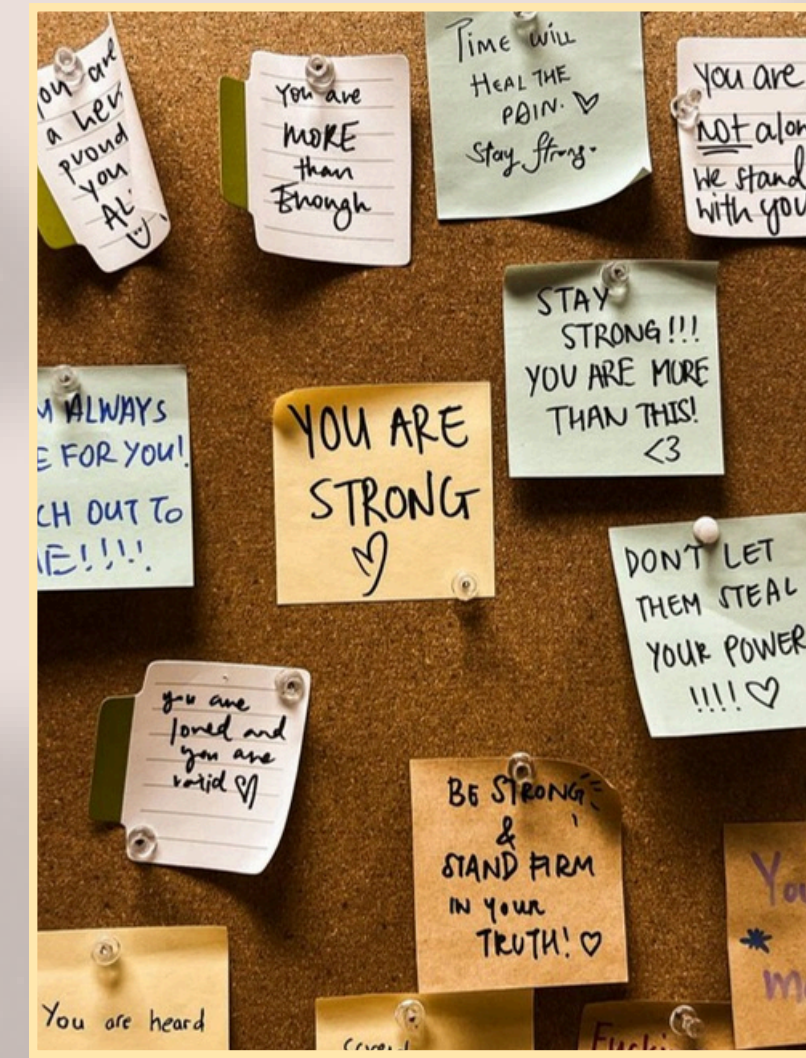 you are
a her
proud
you
AL
You are
MORE
than
Enough
TIME WILL
HEAL THE
PAIN. ♡
Stay Strong.
You are
NOT alon
We stand
with you
STAY
STRONG!!!
YOU ARE MORE
THAN THIS!
<3
M ALWAYS
E FOR YOU!
CH OUT TO
E!!!!
YOU ARE
STRONG
♡
DON'T LET
THEM STEAL
YOUR POWER
!!!! ♡
you are
loved and
you are
valid ♡
BE STRONG
&
STAND FIRM
IN your
TRUTH! ♡
You
m
You are heard